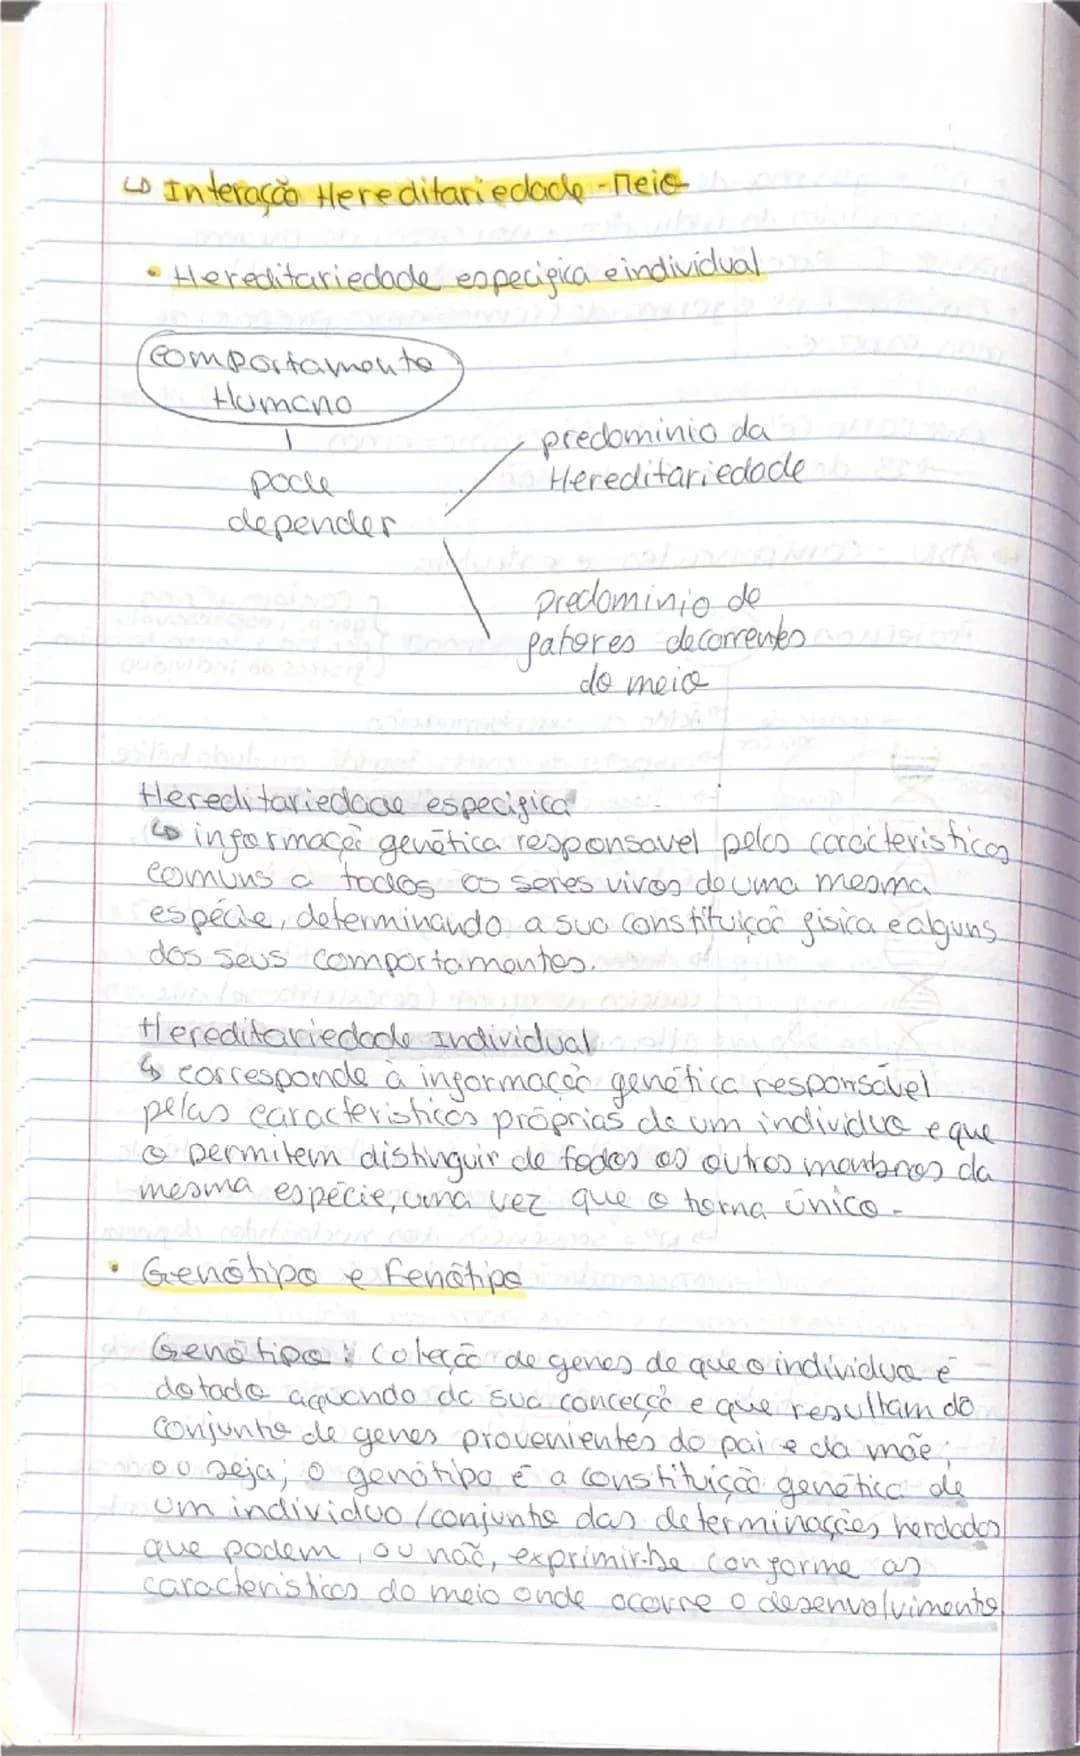 ↳ Interação Hereditariedade - Meio
• Hereditariedade especifica e individual
Comportamento
Humano
pode
depender
predominio da
Hereditariedade
predominio de
fatores decorrentes
do meio
Hereditariedade especifica
↳ informação genética responsavel pelas caracteristicas
comuns a todos os seres vivos de uma mesma
espécie, determinando a sua constituição fisica e alguns
dos seus comportamentos.
Hereditariedade Individual
↳ corresponde à informação genética responsável
pelas caracteristicas próprias de um individuo e que
o permitem distinguir de todos os outros membros da
mesma espécie, uma vez que o torna único.
• Genótipo e Fenótipo
Genótipo: coleção de genes de que o individuo é
dotado aquando da sua conceção e que resultam do
conjunto de genes provenientes do pai e da mãe;
ou seja, o genótipo é a constituição genética de
um individuo / conjunto das determinações herdadas
que podem, ou não, exprimir-se conforme as
caracteristicas do meio onde ocorre o desenvolvimento